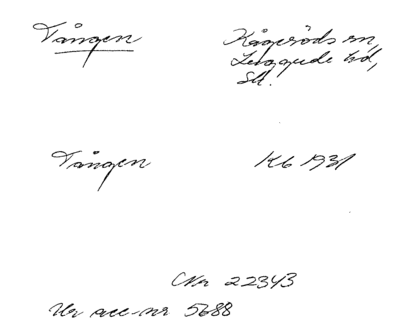 Tången Kågeröds sn,
Luggude hd,
Sk.
Tången Kb 1931
CNr 22343
Ur acc-nr 5688